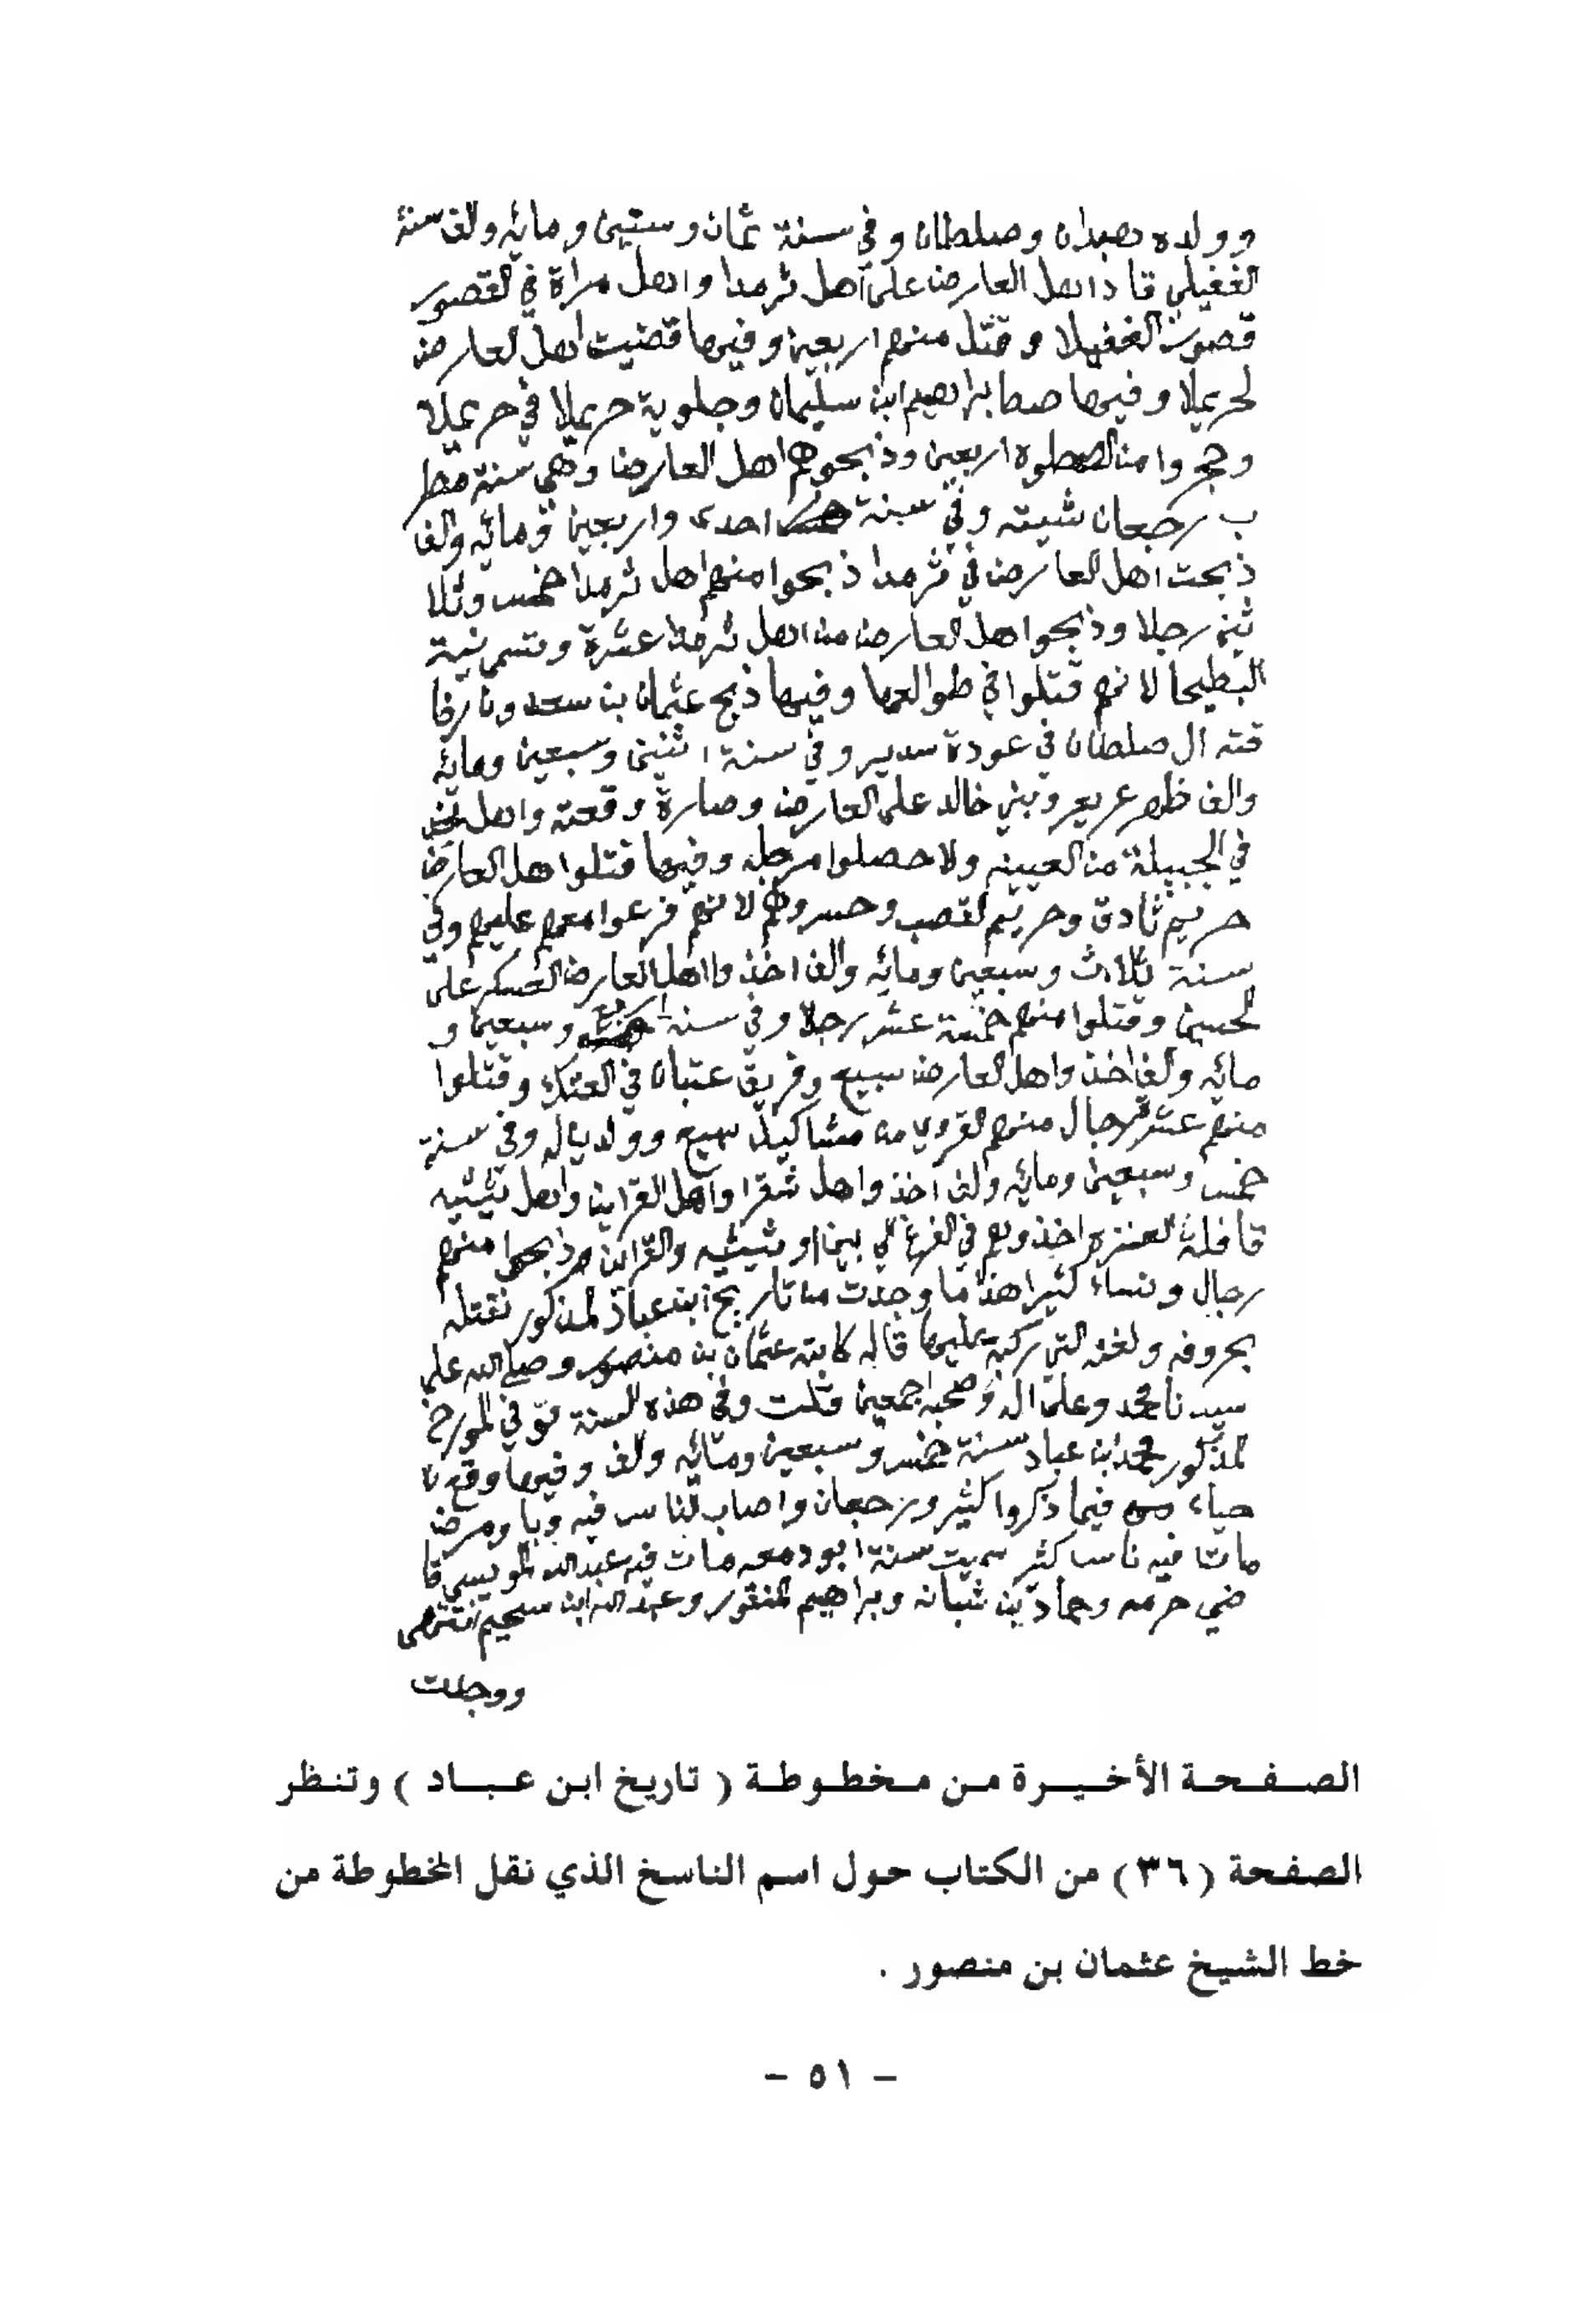 وولده هبدان وصلطان وفي سنة ثمان وستين ومائه والف سنة
الغفيلي قادا اهل العارض على اهل ثرمدا واهل مراة في القصور
قصور الغفيلا وقتل منهم اربعين وفيها قضيت اهل العارض
لحريملا وفيها صطا براهيم ابن سليمان وجلوية حريملا في حريملا
وحجروا من الصطوه اربعين وذبحوهم اهل العارض وهي سنة مطر
ب رجعان شيته وفي سنة احدى واربعين ومائه والف
ذبحت اهل العارض في ثرمدا ذبحوا منهم اهل ثرمدا خمس وثلا
ثين رجلا وذبحوا هل العارض من اهل ثرمدا عشرة وتسمى
البطيحا لانهم قتلوا في طوالعها وفيها ذبح عثمان بن سعد
قته ال صلطان في عودة سدير وفي سنة اثنين وسبعين ومائه
والف ظهر عريعر وبني خالد على العارض وصارة وقعته واهل نجد
في الجبيلة من العيينه ولا حصلوا مرجله وفيها قتلوا هل العارض
حريم ثادق وحريم القصب وحسروهم لانهم فزعوا معهم عليهم وفي
سنة ثلاث وسبعين ومائه والف اخذوا اهل العارض العسكر على
الحسين وقتلوا منهم خمسة عشر رجلا وفي سنة اربع وسبعين و
مائه والف اخذوا هل العارض سبيع وفريق عتبان في العتك وقتلوا
منهم عشرة رجال منهم القروي من مشاكيل سبيع وولد يا له وفي سنة
خمس وسبعين ومائه والف اخذوا هل شقرا واهل القراين واهل ثيثيه
قافلة لعنزه اخذوهم في بين اوثيثيه والقراين وذبحوا منهم
رجال ونساء كثيرا هذا ما وجدت من تاريخ ابن عباد المذكور نقتله
بحروفه ولغته التي ركبه عليها قاله كاتبه عثمان بن منصور وصلى الله على
سيدنا محمد وعلى اله وصحبه اجمعين قلت وفي هذه السنة توفي المورخ
المذكور محمد ابن عباد سنة خمس وسبعين ومائه والف وفيها وقع
حياء فيما ذكروا كثير ورجعان واصاب الناس فيه وبا ومرض
مات فيه ناسا كثر سميت سنة ابو دمعه مات فيه عبدالله المويسي قا
ضي حرمه وحماد بن شبانه وبراهيم المنقور وعبد الله ابن سحيم انتهى
ووجدت
الصفحة الأخيرة من مخطوطة ( تاريخ ابن عباد ) وتنظر
الصفحة (٣٦) من الكتاب حول اسم الناسخ الذي نقل المخطوطة من
خط الشيخ عثمان بن منصور .
- ٥١ -